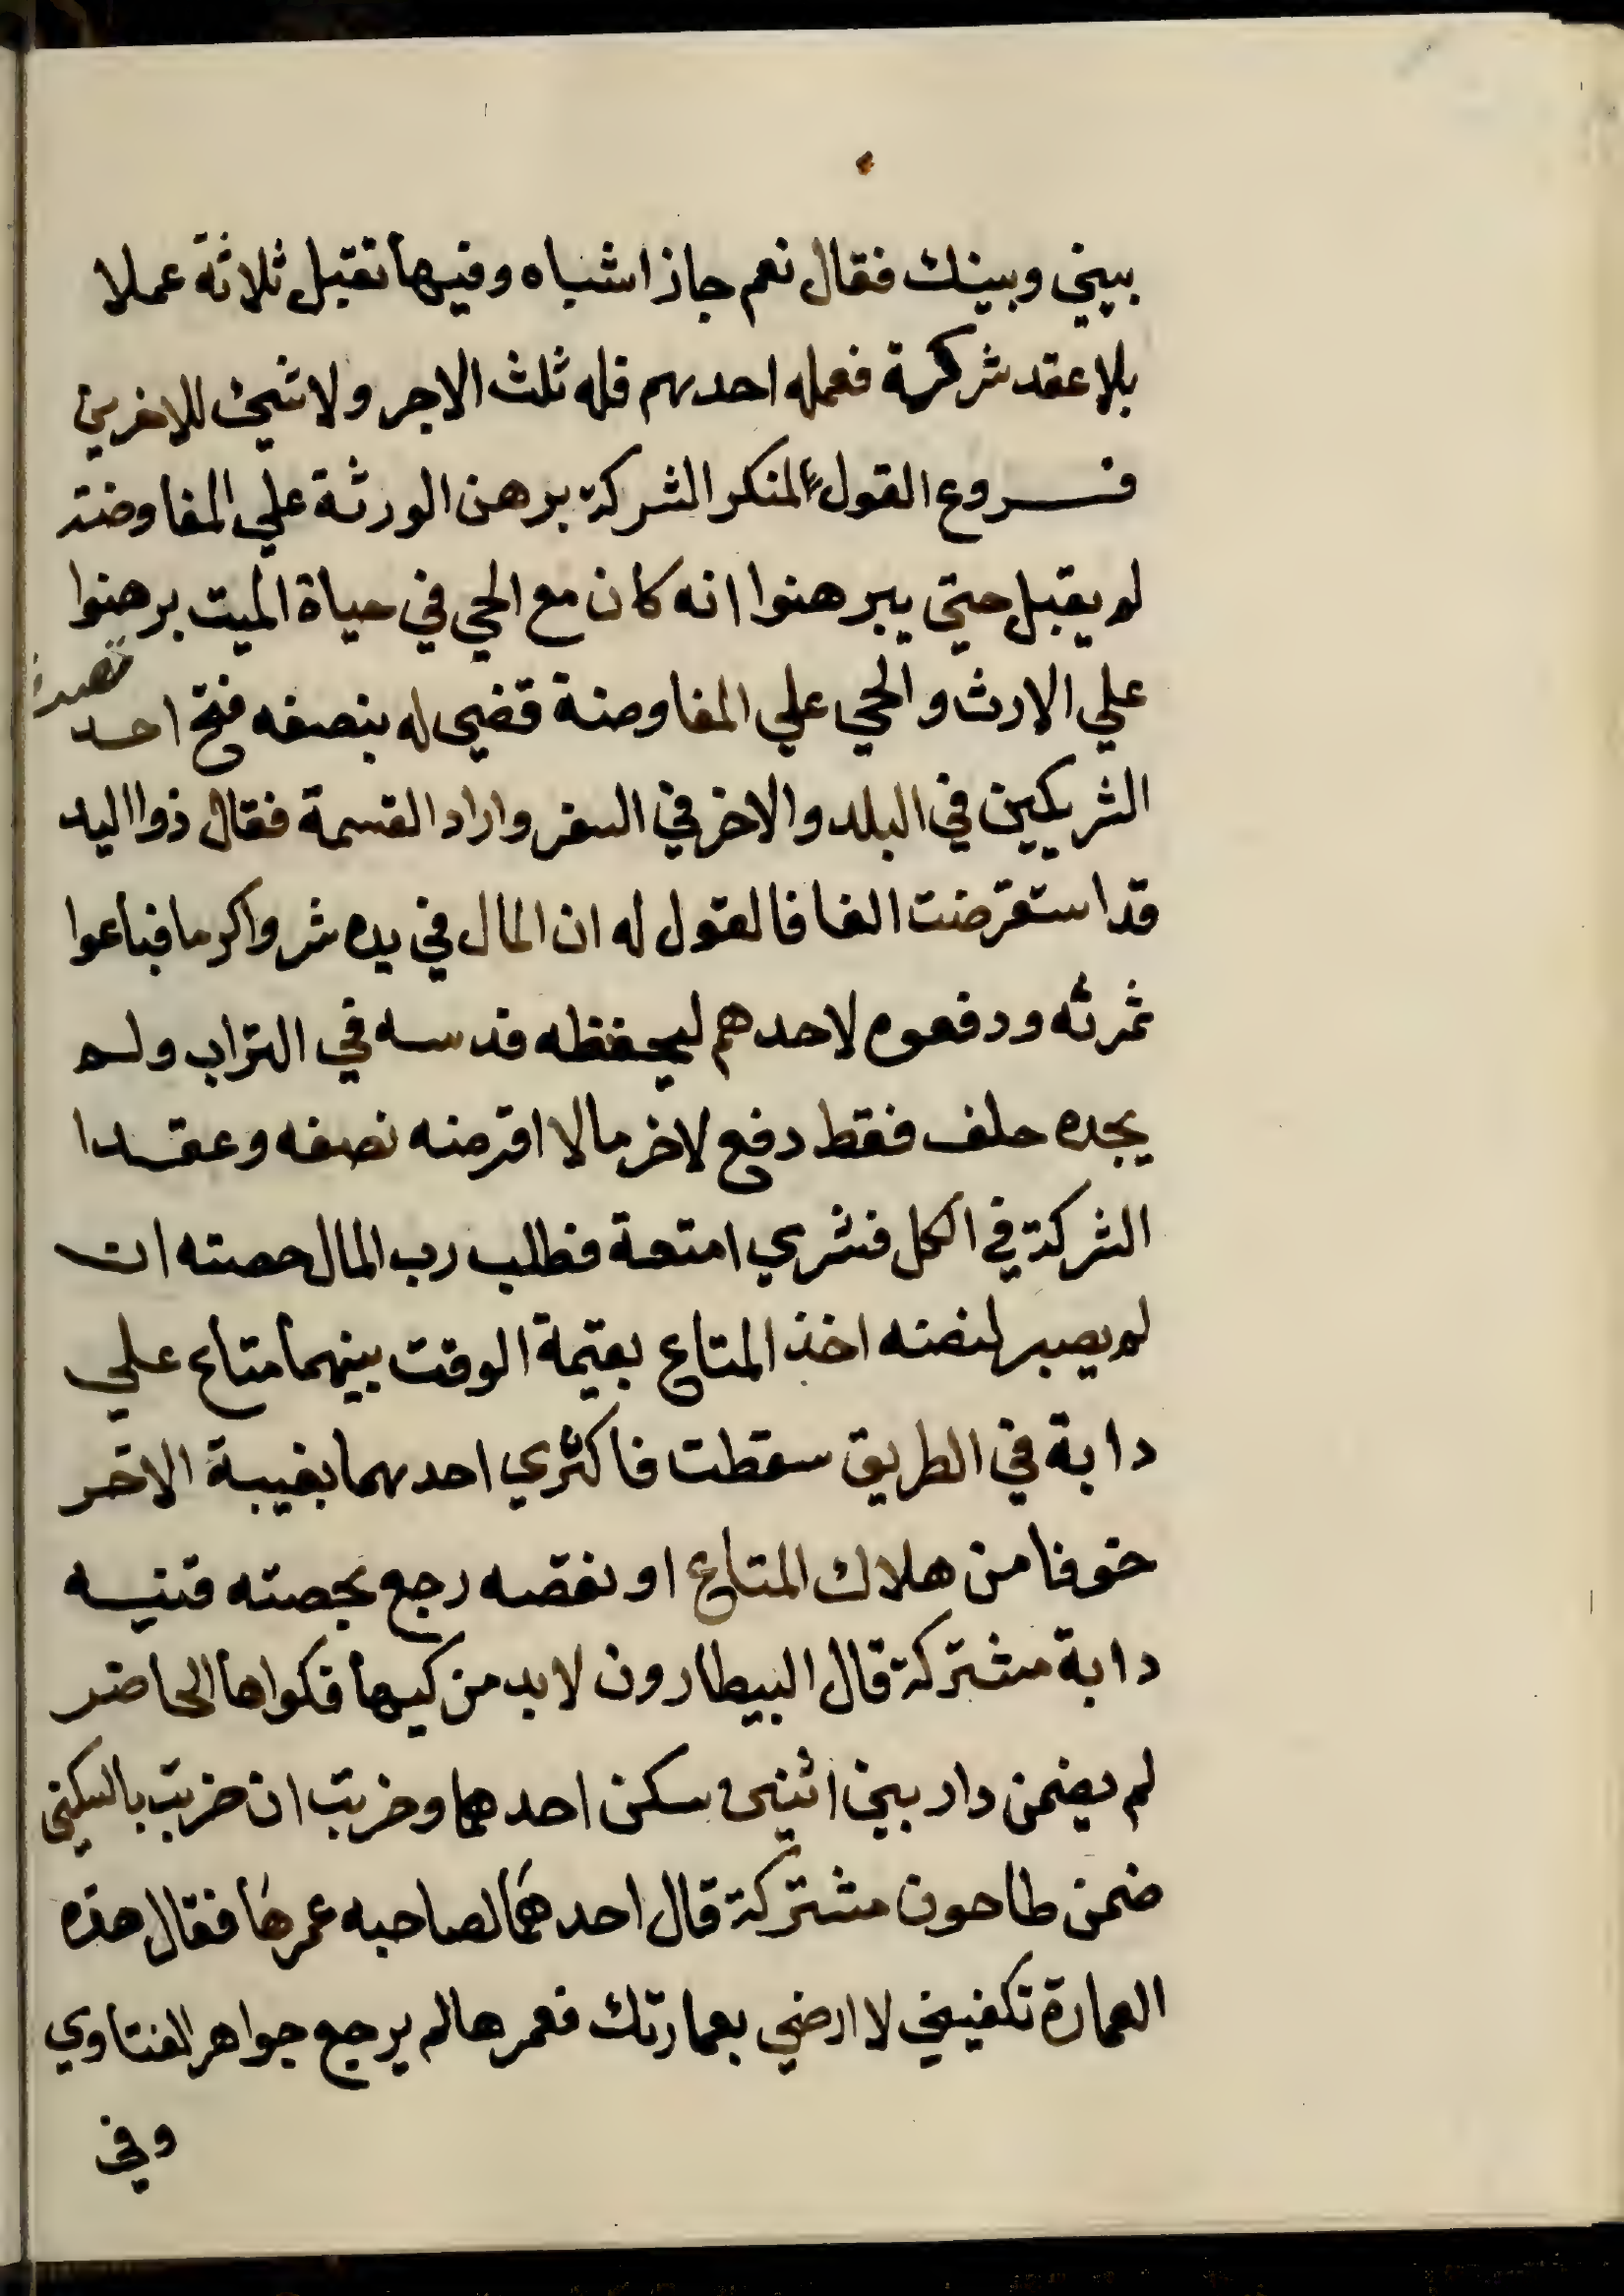 بيني وبينك فقال نعم جاز اشباه وفيها تقبل ثلاثة عملا
بلا عقد شركة فعمله احدهم فله ثلث الاجر ولا شيئ للاخرين
فروع القول لمنكر الشركة برهن الورثة علي المفاوضة
لم يقبل حتي يبرهنوا انه كان مع الحي في حياة الميت برهنوا
علي الارث والحي علي المفاوضة قضي له بنصفه فتح احد
الشريكين في البلد والاخر في السفر واراد القسمة فقال ذوا اليد
قد استقرضت الفا فالقول له ان المال في يده شروا كرما فباعوا
ثمرته ودفعوه لاحدهم ليحفظه فدسه في التراب ولم
يجده حلف فقط دفع لاخر مالا اقرضه نصفه وعقدا
الشركة في الكل فشري امتعة فطلب رب المال حصته ان
لم يصبر لنضه اخذ المتاع بقيمة الوقت بينهما متاع علي
دابة في الطريق سقطت فاكتري احدهما بغيبة الاخر
خوفا من هلاك المتاع او نقصه رجع بحصته قنيه
دابة مشتركة قال البيطارون لا بد من كيها فكواها الحاضر
لم يضمن دار بين اثنين سكن احدهما وخربت ان خربت بالسكني
ضمن طاحون مشتركة قال احدهما لصاحبه عمرها فقال هذه
العمارة تكفيني لا ارضي بعمارتك فعمرها لم يرجع جواهر الفتاوي
وفي